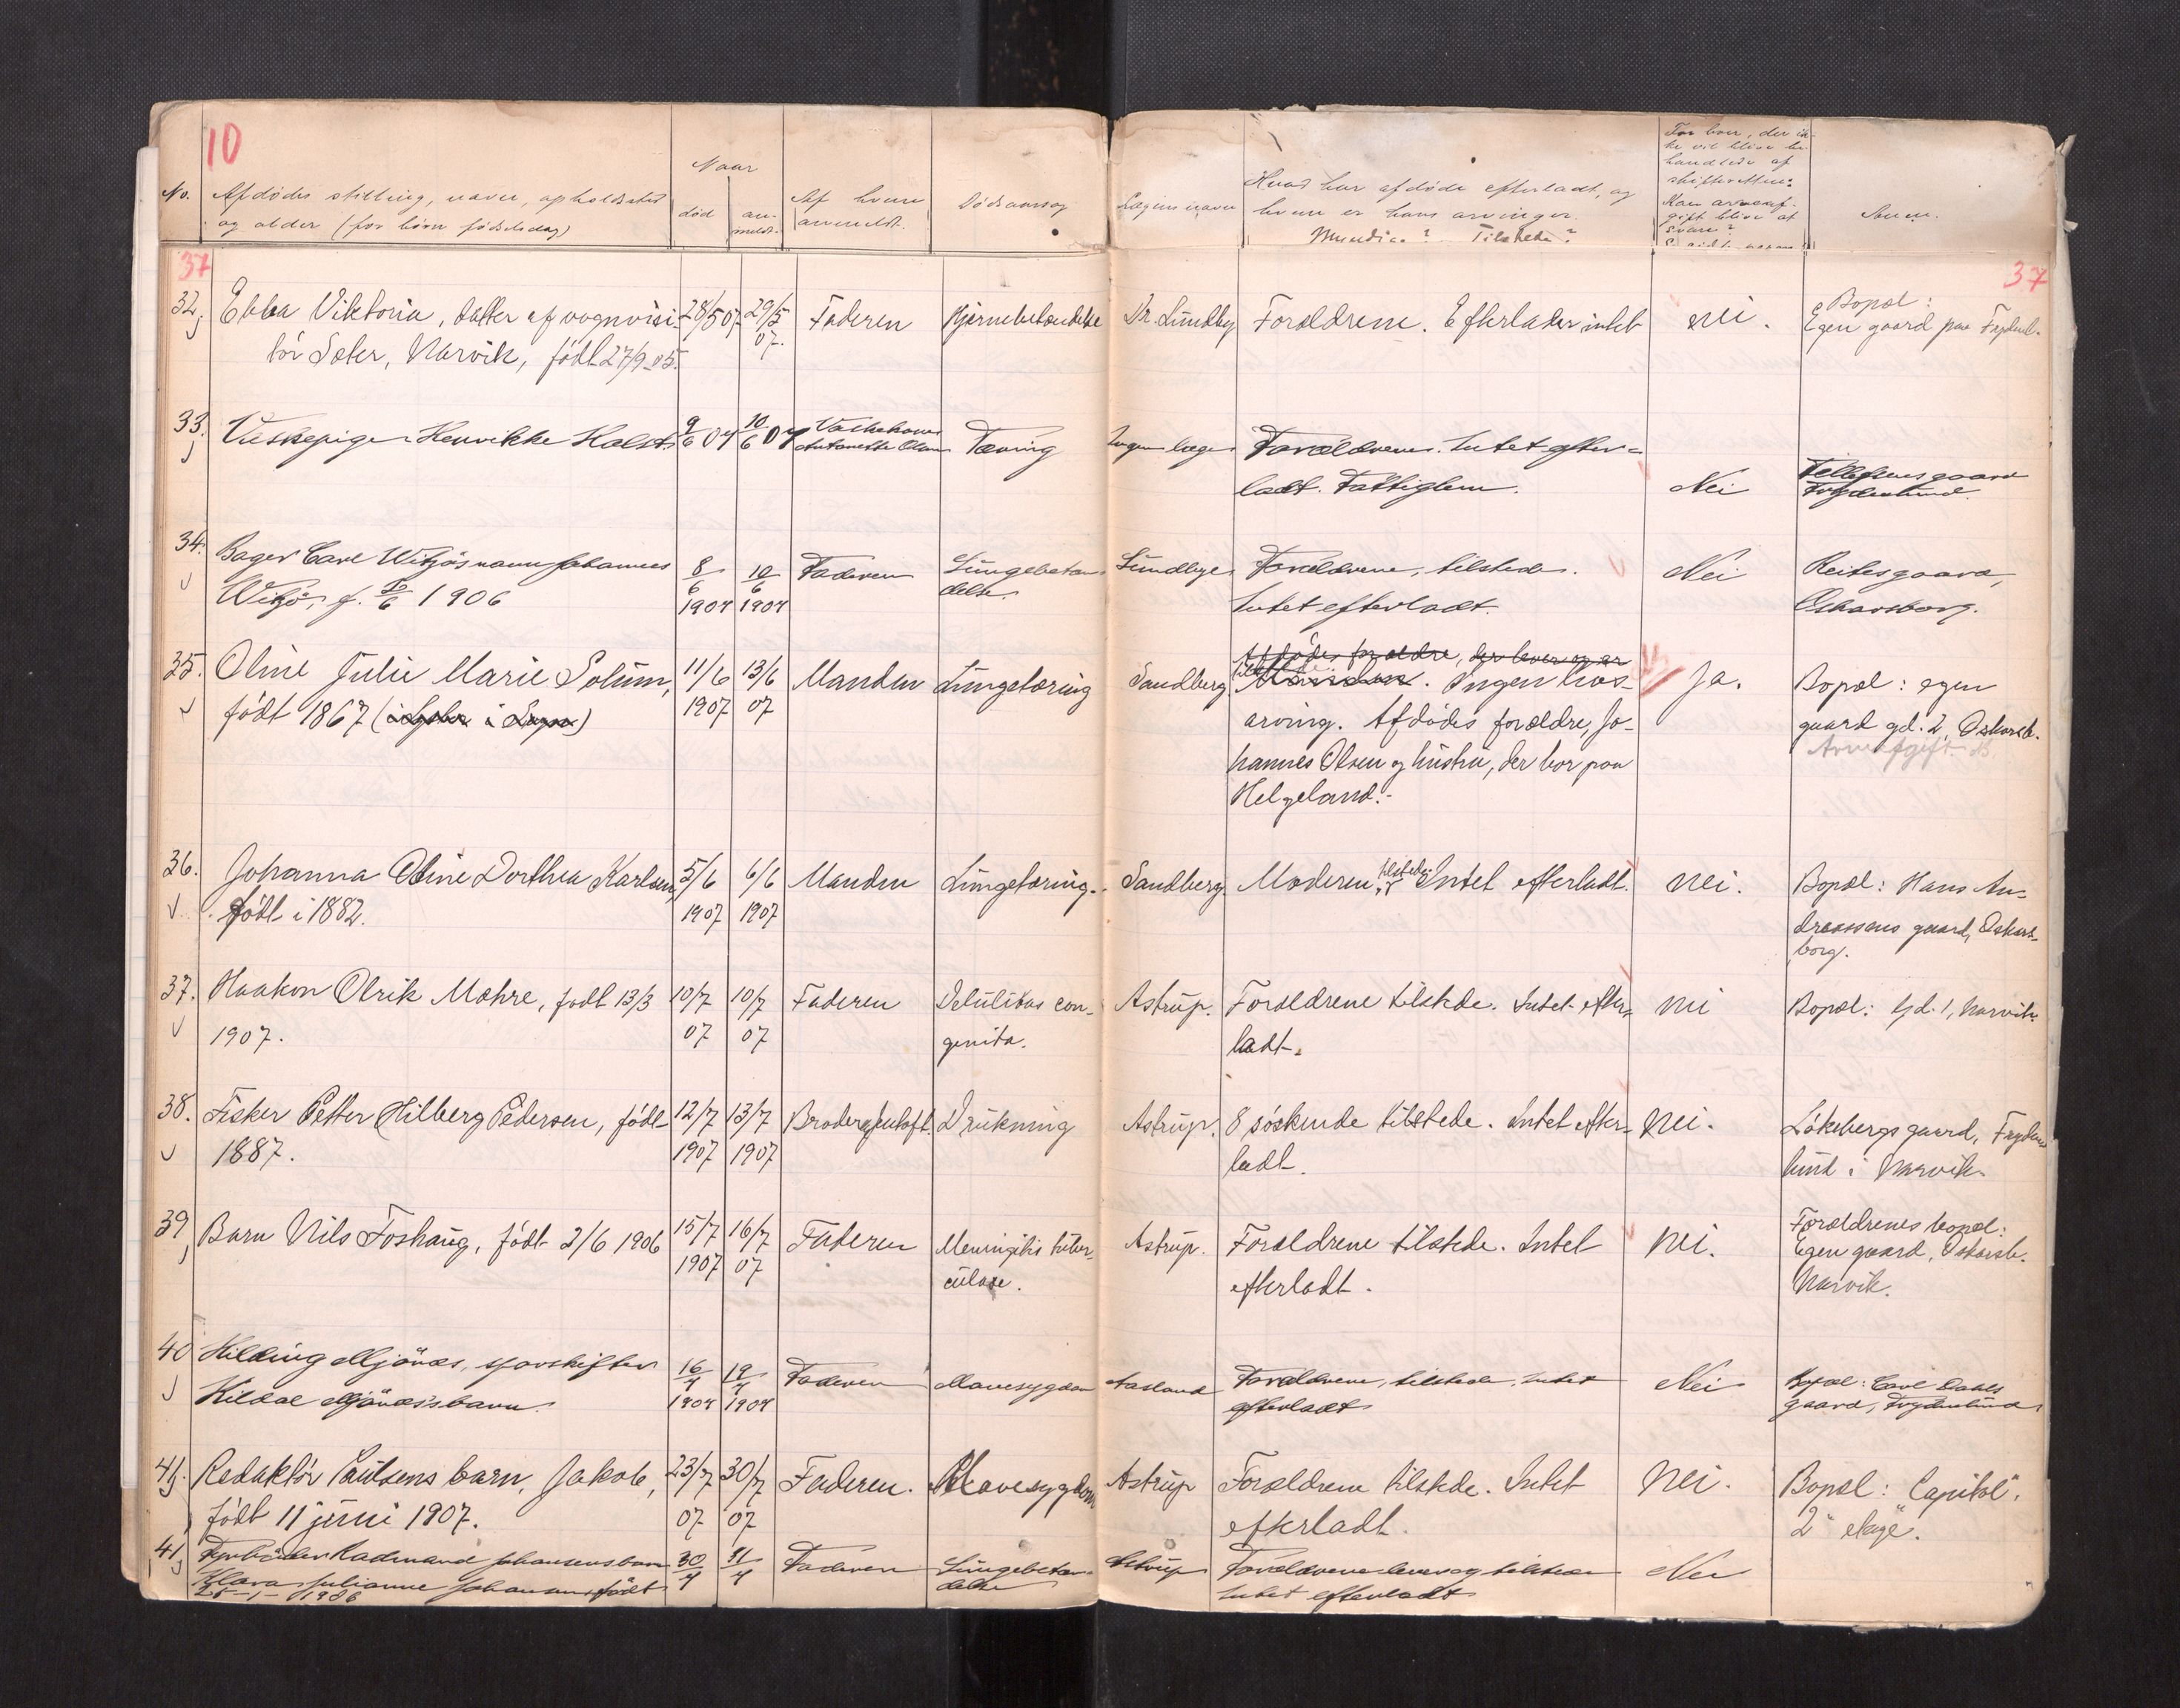 10
No.
Afdødes stilling, navn, opholdssted
og alder (for børn fødselsdag)
Naar
død
an-
meldt.
Af hvem
anmeldt.
Dødsaarsag
Lægens navn
Hvad har afdøde efterladt, og
hvem er hans arvinger.
Myndige? Tilstede?
For boer, der ik-
ke vil blive be-
handlede af
skifteretten:
Kan arveaf-
gift blive at
svare?
Anm.
37
37
32. Ebba Viktoria, datter af vognvisi-
tør Sæter, Narvik, født 27/9-05.
28/5 07
29/5
07.
Faderen
Hjernebetændelse
Dr. Sundby
Forældrene. Efterlader intet
nei.
Bopæl:
Egen gaard paa Frydenl.
33. Væskepige Henrikke Holst.
9/6 07
10/6 07
Antonette Olsen
Tæring
Ingen læge
Forældrene. Intet efter-
ladt. Fattiglem.
Nei
Tellefsens gaard
Frydenlund.
34. Bager Carl Witzøs navn Johannes
Witzø, f. 1906
8/6
1907
10/6
1907
Faderen
Lungebetæn-
delse.
Sundbye
Forældrene, tilstede.
Intet efterladt.
Nei
Reitesgaard,
Oskarsborg.
35. Oline Julie Marie Solum,
født 1867
11/6
1907
13/6
07
Manden
Lungetæring
Sandberg
Afdødes forældre, der lever og er
Manden. Ingen livs-
arving. Afdødes forældre, Jo-
hannes Olsen og hustru, der bor paa
Helgeland.-
Ja.
Bopæl: egen
gaard gd. 2, Oskarsb.
Arveafgift
36. Johanna Oline Dorthea Karlsen,
født i 1882.
5/6
1907
6/6
1907
Manden
Lungetæring.
Sandberg
Moderen, tilstede. Intet efterladt.
nei.
Bopæl: Hans An-
dreassens gaard, Oskars-
borg.
37. Haakon Olrik Mæhre, født 13/3
1907.
10/7
07
10/7
07
Faderen
Debilitas con-
genita.
Astrup.
Forældrene tilstede. Intet efter-
ladt.
nei
Bopæl: Gd. 1, Narvik.
38. Fisker Petter Hilberg Pedersen, født
1887.
12/7
1907
13/7
1907
Broder
Drukning
Astrup.
8 søskende tilstede. Intet efter-
ladt.
nei.
Løkebergs gaard, Fryden-
lund i Narvik.
39 Barn Nils Foshaug, født 2/6 1906
15/7
1907
16/7
07
Faderen
Meningitis tuber-
culose.
Astrup.
Forældrene tilstede. Intet
efterladt.
nei.
Forældrenes bopæl:
Egen gaard, Oskarsb.
Narvik.
40 Hilding Mjønæs, sporskifter
Kildal Mjønæs's barn.
16/7
1907
19/7
1907
Faderen
Mavesygdom
Aasland
Forældrene, tilstede. Intet
efterladt
Nei
Bopæl: Carl Dahls
gaard, Frydenlund
41. Redaktør Paulsens barn, Jakob,
født 11 juni 1907.
23/7
07
30/7
07
Faderen.
Mavesygdom
Astrup
Forældrene tilstede. Intet
efterladt.
nei.
Bopæl: "Capitol".
2" etage.
41. Fyrbøder Johansens barn
Klara Julianne Johansen, født
30/7
31/7
Faderen
Lungebetæn-
delse
Astrup
Forældrene lever og tilstede
Intet efterladt
Nei